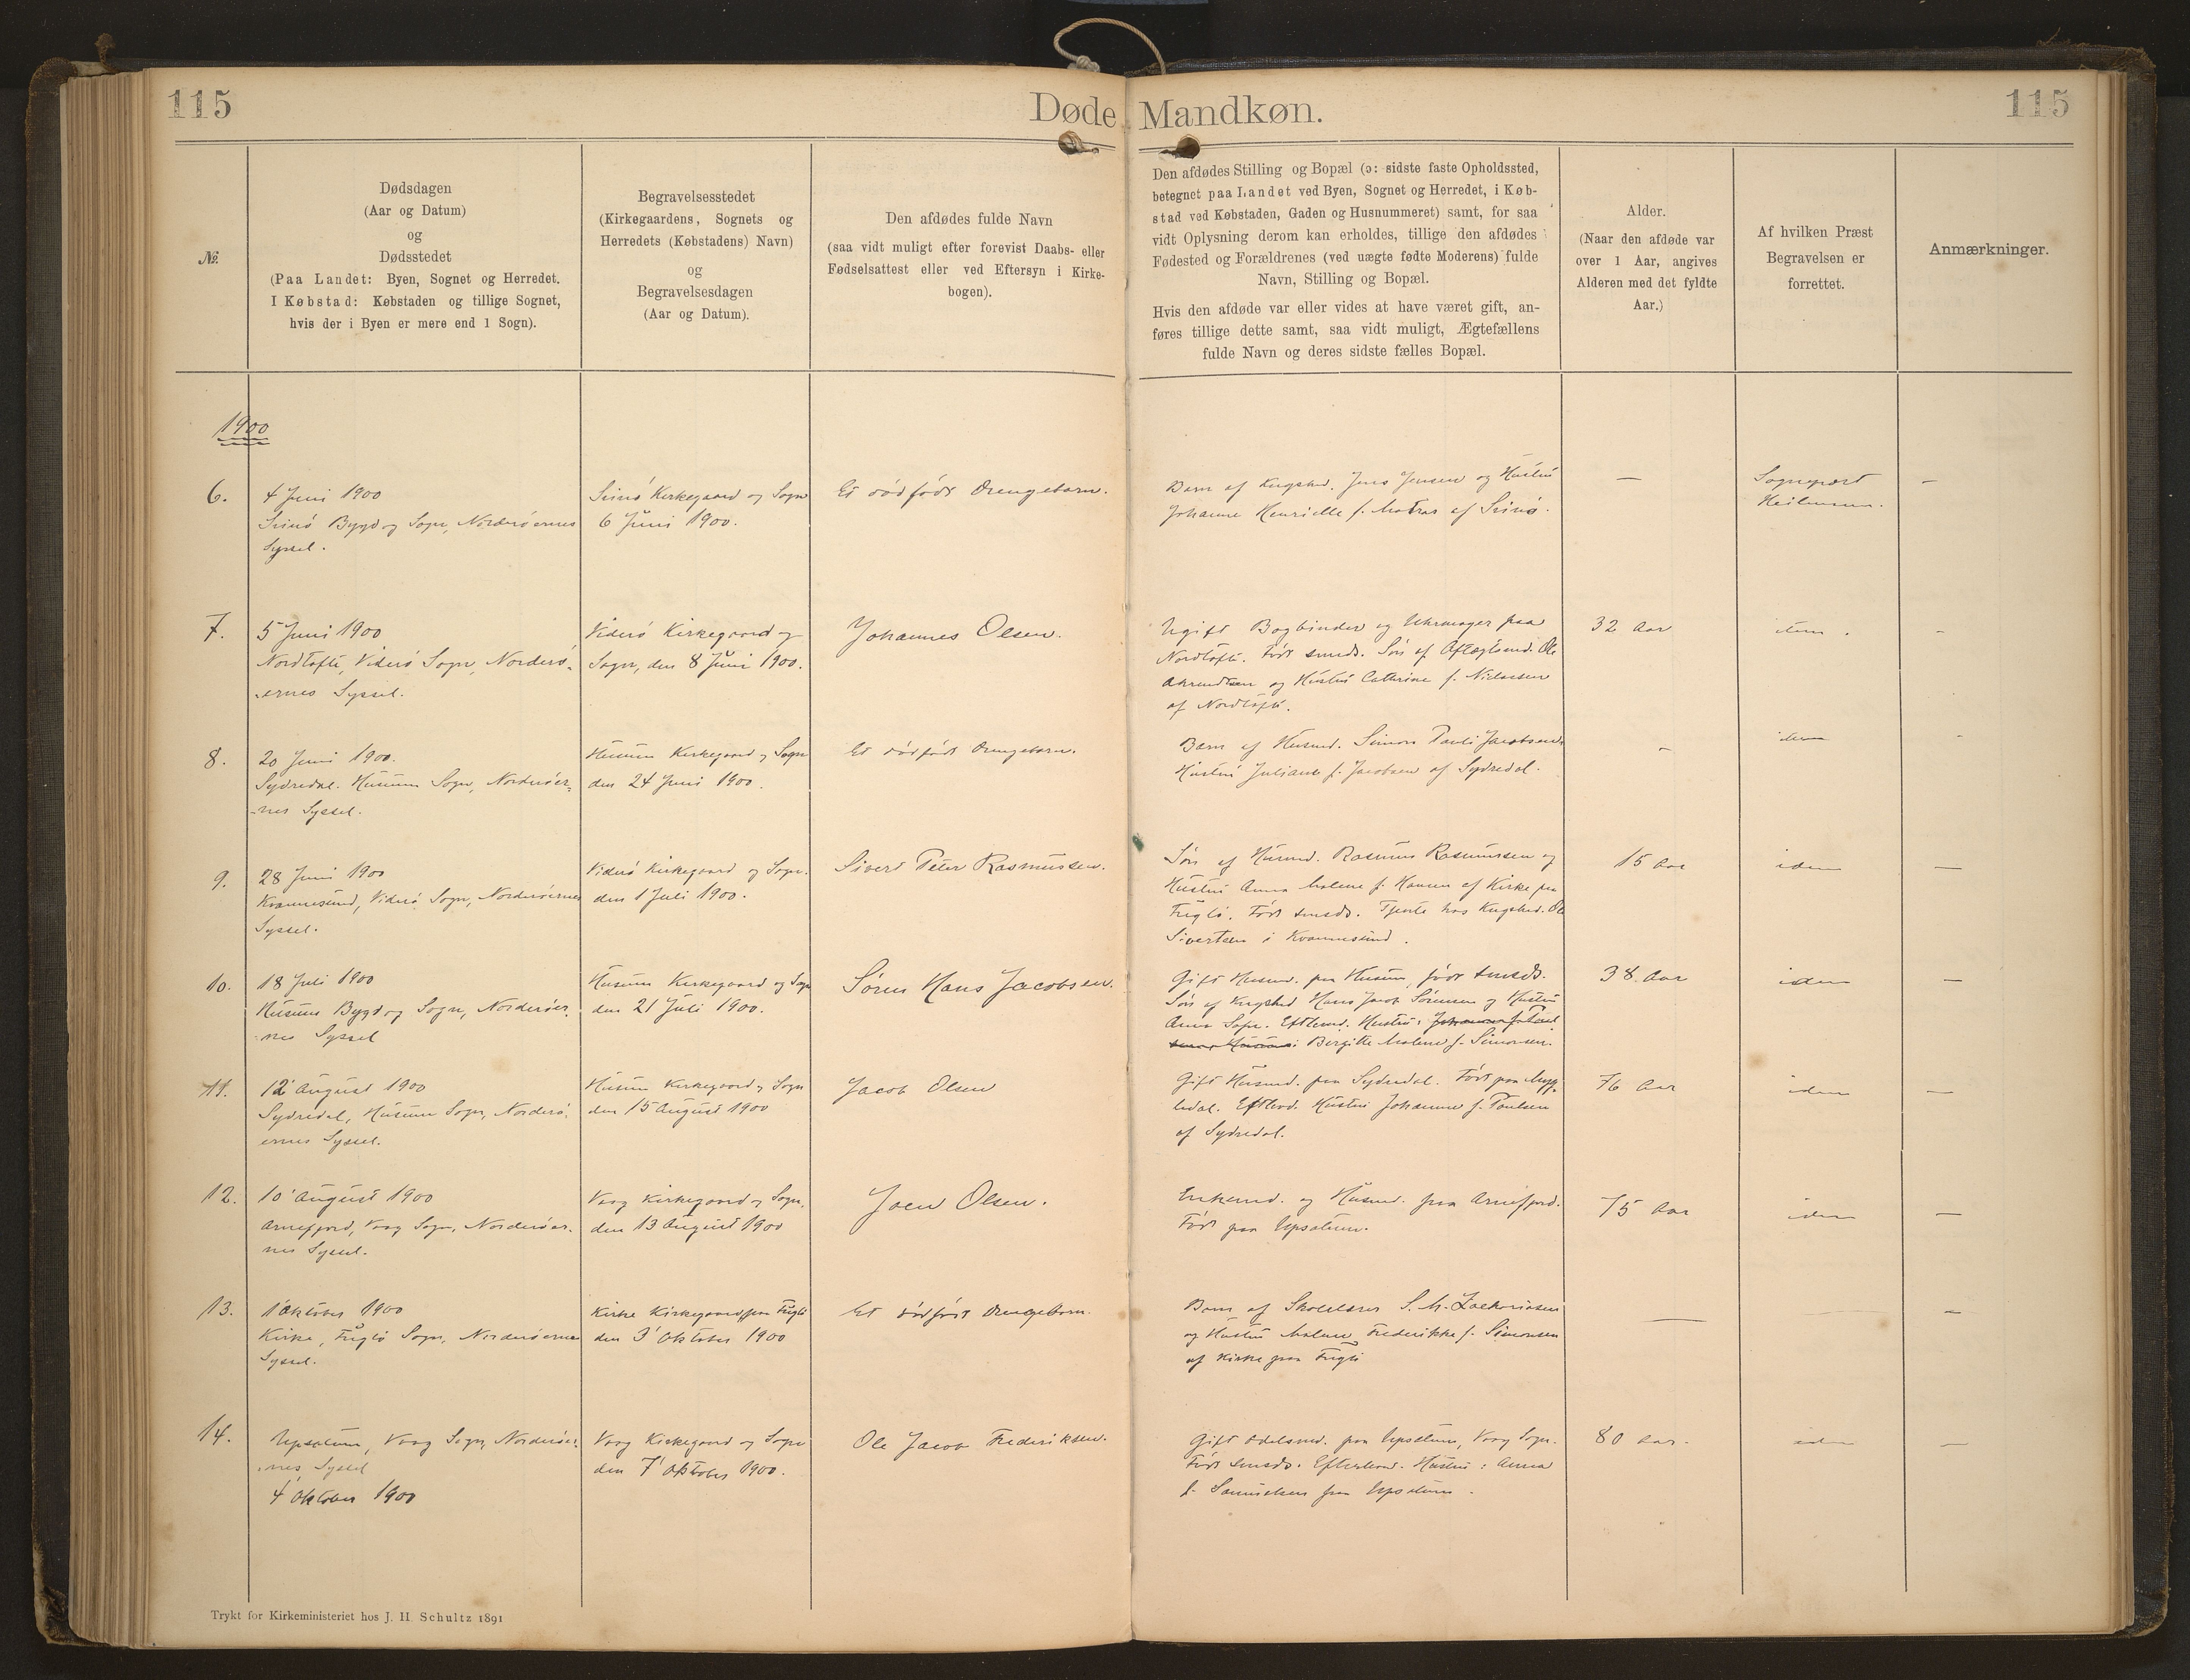 115
Døde Mandkøn.
115
№.
Dødsdagen
(Aar og Datum)
og
Dødsstedet
(Paa Landet: Byen, Sognet og Herredet.
I Købstad: Købstaden og tillige Sognet,
hvis der i Byen er mere end 1 Sogn).
Begravelsesstedet
(Kirkegaardens, Sognets og
Herredets (Købstadens) Navn)
og
Begravelsesdagen
(Aar og Datum).
Den afdødes fulde Navn
(saa vidt muligt efter forevist Daabs- eller
Fødselsattest eller ved Eftersyn i Kirke-
bogen).
Den afdødes Stilling og Bopæl (ɔ: sidste faste Opholdssted,
betegnet paa Landet ved Byen, Sognet og Herredet, i Køb-
stad ved Købstaden, Gaden og Husnummeret) samt, for saa
vidt Oplysning derom kan erholdes, tillige den afdødes
Fødested og Forældrenes (ved uægte fødte Moderens) fulde
Navn, Stilling og Bopæl.
Hvis den afdøde var eller vides at have været gift, an-
føres tillige dette samt, saa vidt muligt, Ægtefællens
fulde Navn og deres sidste fælles Bopæl.
Alder.
(Naar den afdøde var
over 1 Aar, angives
Alderen med det fyldte
Aar.)
Af hvilken Præst
Begravelsen er
forrettet.
Anmærkninger.
1900
6.
4 Juni 1900
Svinö Bygd og Sogn, Norderöernes
Syssel.
Svinö Kirkegaard og Sogn
6 Juni 1900.
Et dödfödt Drengebarn.
Barn af Kngsbd. Jens Jensen og Hustru
Johanne Henriette f. Matras af Svinö.
—
Sognepræst
Heilmann.
—
7.
5 Juni 1900
Nordtofte, Viderö Sogn, Norderö-
-ernes Syssel.
Viderö Kirkegaard og
Sogn, den 8 Juni 1900.
Johannes Olsen.
Ugift Bogbinder og Uhrmager paa
Nordtofte. Födt smsds. Sön af Aftægtsmd. Ole
Ahrendtsen og Hustru Cathrine f. Nielsen
af Nordtofte.
32 Aar
idem.
-
8.
20 Juni 1900.
Sydredal. Husum Sogn, Norderöer-
-nes Syssel.
Husum Kirkegaard og Sogn
den 24 Juni 1900.
Et dödfödt Drengebarn.
Barn af Husmd. Simon Pauli Jacobsen
Hustru Juliane f. Jacobsen af Sydredal.
-
idem
-
9.
28 Juni 1900
Kvannesund, Viderö Sogn, Norderöernes
Syssel.
Viderö Kirkegaard og Sogn.
den 1 Juli 1900.
Sivert Peter Rasmussen.
Sön af Husmd. Rasmus Rasmussen og
Hustru Anna Malene f. Hansen af Kirke paa
Fuglö. Födt smsds. Tjente hos Kngsbd. Ole
Sivertsen i Kvannesund.
15 Aar
idem
—
10.
18 Juli 1900
Husum Bygd og Sogn, Norderöer-
-nes Syssel
Husum Kirkegaard og Sogn
den 21 Juli 1900.
Sören Hans Jacobsen.
Gift Husmd. paa Husum, födt smsds.
Sön af Kngsbd Hans Jacob Sörensen og Hustru
Anna Sofie. Efterlevd. Hustru: Johanne f. Poul-
sen Husum: Birgitte Malene f. Simonsen.
38 Aar
idem
—
11.
12 August 1900
Sydredal, Husum Sogn, Norderö-
ernes Syssel.
Husum Kirkegaard og Sogn
den 15 August 1900
Jacob Olsen
Gift Husmd. paa Sydredal. Födt paa Mygg-
ledal. Efterlevd. Hustru Johanne f. Poulsen
af Sydredal.
76 Aar
idem
—
12.
10 August 1900
Arnefjord, Vaag Sogn, Norderöer-
nes Syssel.
Vaag Kirkegaard og Sogn,
den 13 August 1900
Joen Olsen.
Enkemd. og Husmd. paa Arnefjord.
Födt paa Upsalum.
75 Aar
idem
—
13.
1 Oktober 1900
Kirke, Fuglö Sogn, Norderöernes
Syssel.
Kirke Kirkegaard paa Fuglö
den 3 Oktober 1900
Et dödfödt Drengebarn.
Barn af Skolelærer S. M. Zachariasen
og Hustru Malene Frederikke f. Simonsen
af Kirke paa Fuglö
—
—
14.
Upsalum, Vaag Sogn, Norderöer-
-nes Syssel
4 Oktober 1900
Vaag Kirkegaard og Sogn
den 7 Oktober 1900.
Ole Jacob Frederiksen.
Gift Odelsmd. paa Upsalum, Vaag Sogn.
Födt smsds. Efterlevd. Hustru: Anna
f. Samuelsen paa Upsalum.
80 Aar.
idem
—
Trykt for Kirkeministeriet hos J. H. Schultz 1891